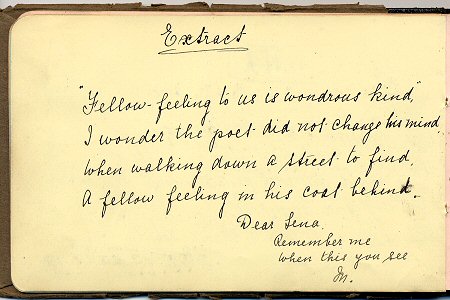 Extract
"Fellow-feeling to us is wondrous kind",
I wonder the poet did not change his mind,
When walking down a street to find,
A fellow feeling in his coat behind.
Dear Lena.
Remember me
When this you see
M.